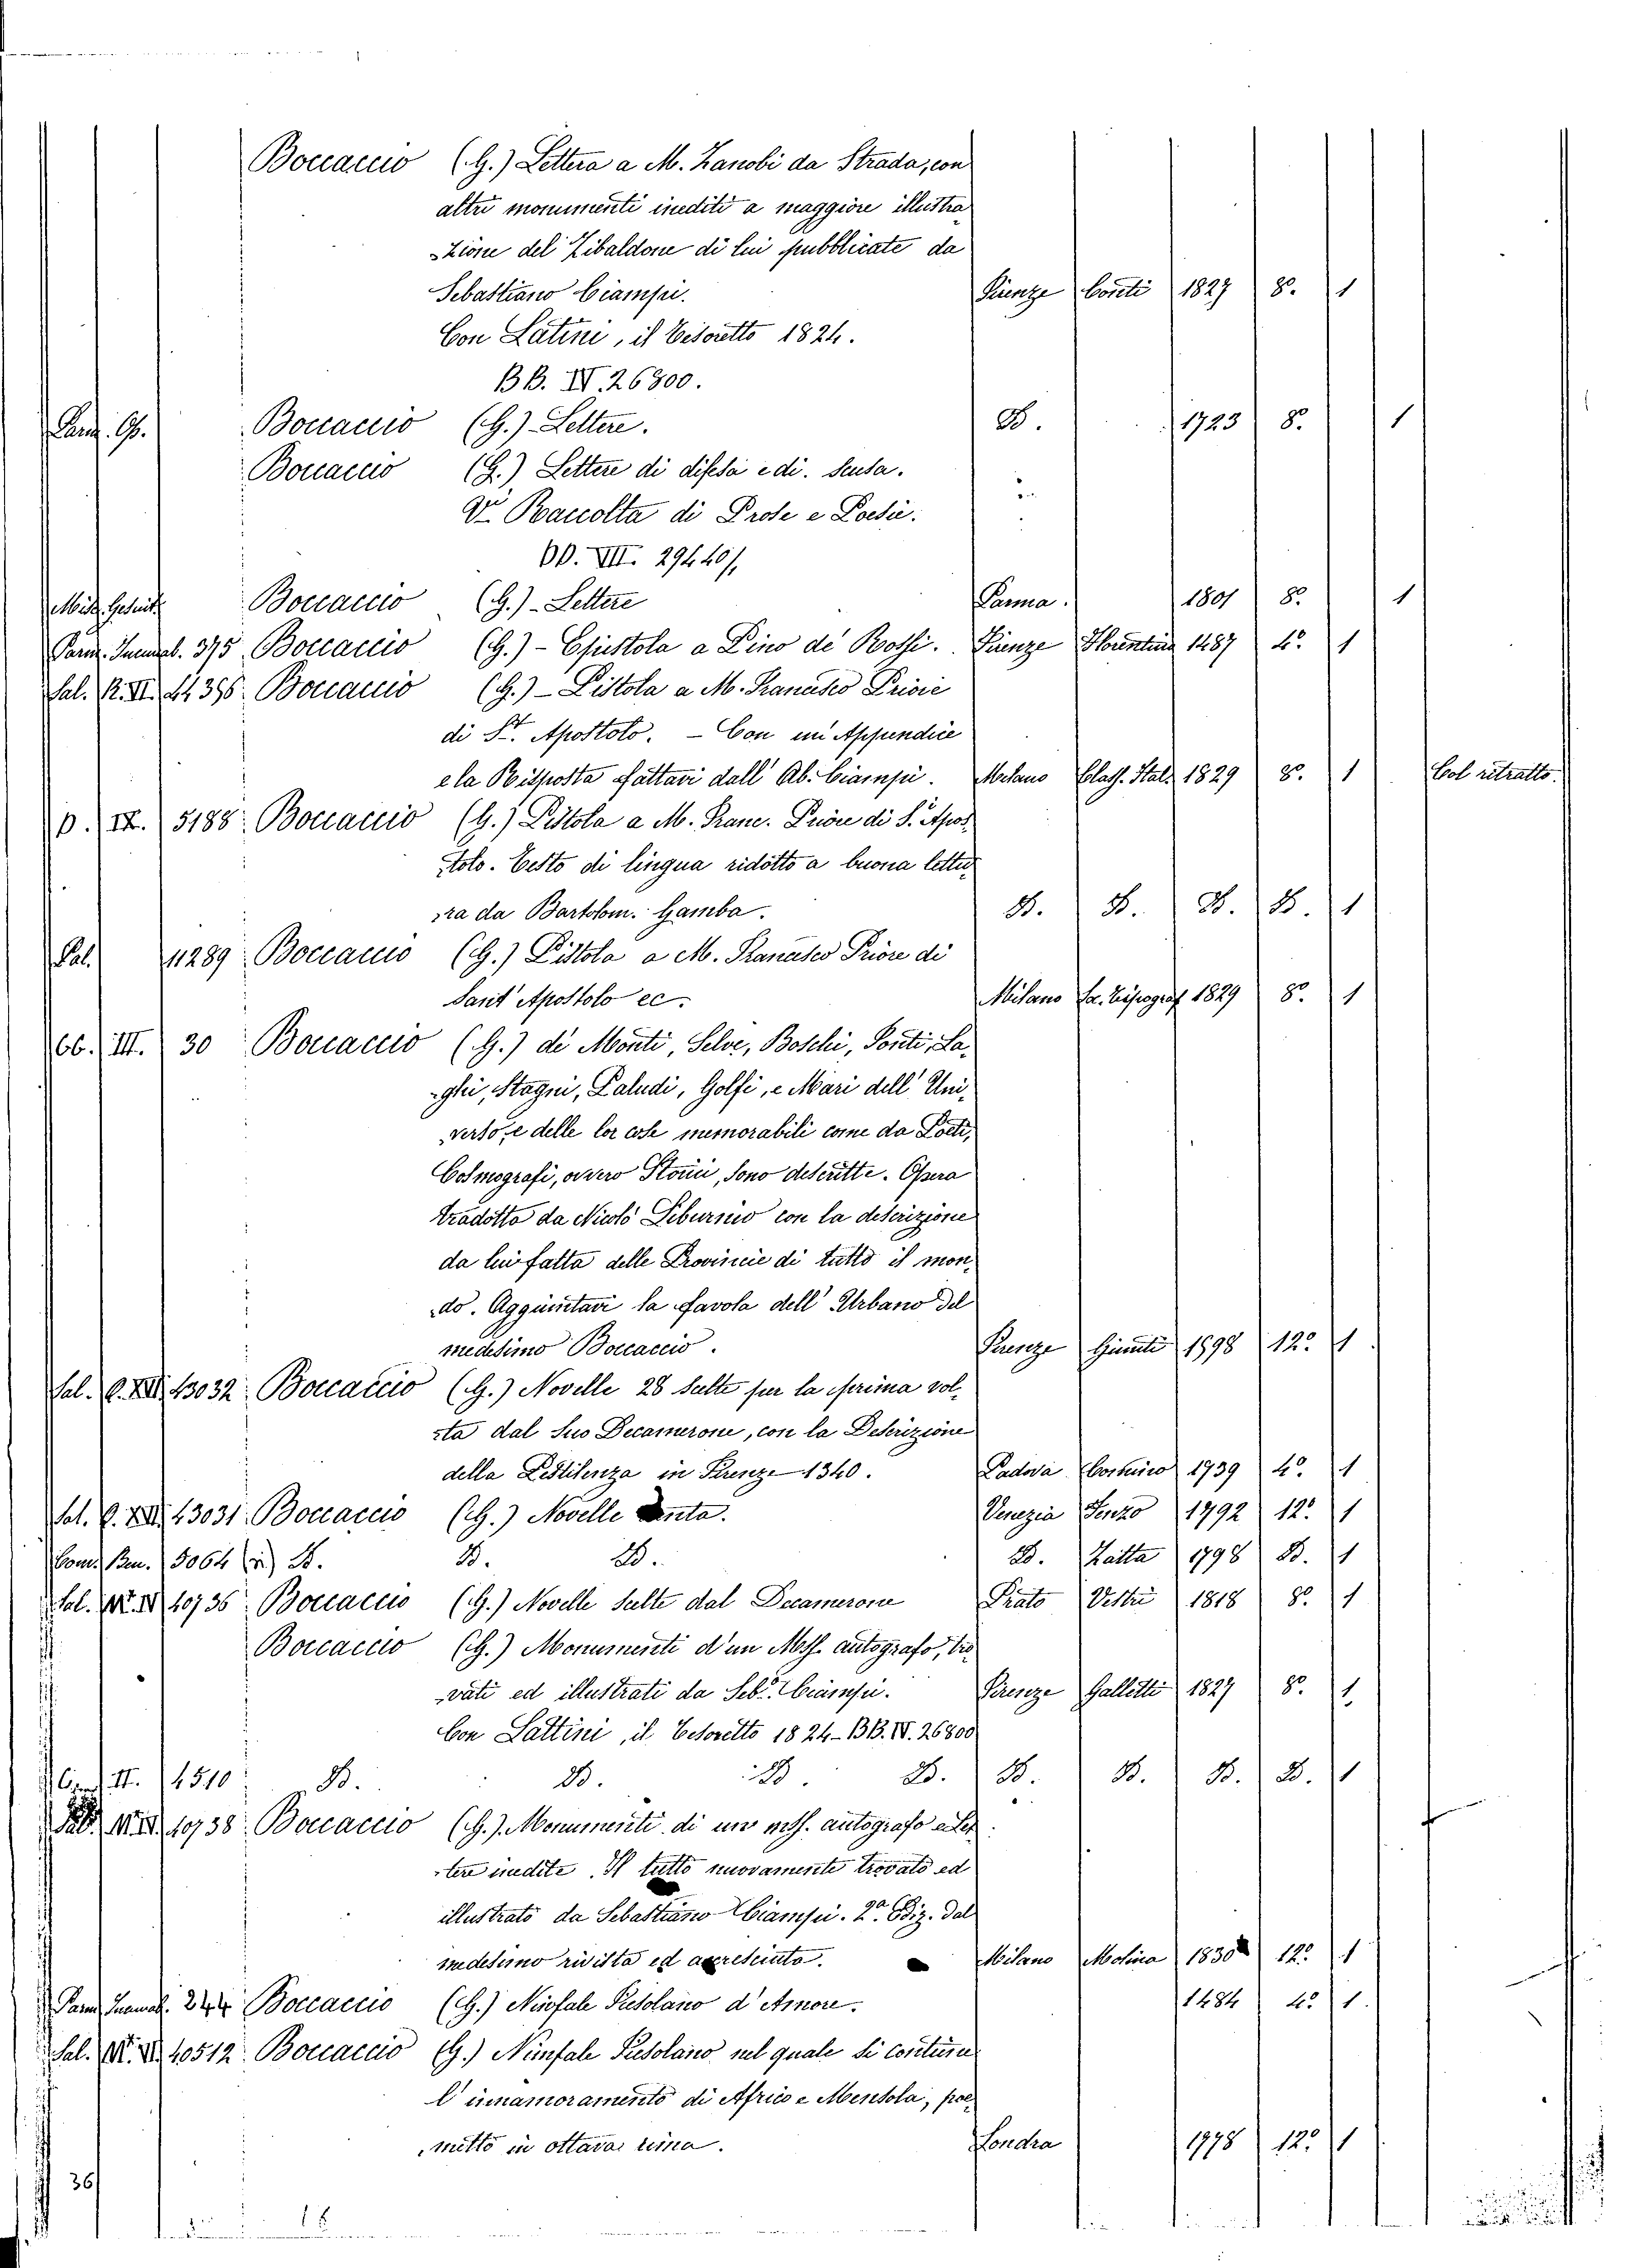 Boccaccio (G.) Lettera a M. Zanobi da Strada, con
altri monumenti inediti a maggiore illustra
zione del Zibaldone di lui pubblicate da
Sebastiano Ciampi. Firenze Conti 1827 8. 1
Con Latini, il Tesoretto 1824.
BB. IV. 26800.
Boccaccio (G.) - Lettere. D. 1723 8.º 1
Boccaccio (G.) Lettere di difesa e di scusa.
Vi Raccolta di Prose e Poesie.
DD. VII. 29440/1
Boccaccio (G.) - Lettere Parma. 1801 8.º 1
Parm. Incunab. 375 Boccaccio (G.) - Epistola a Pino de' Rossi. Firenze Florentina 1487 4.º 1
Sal. 44396 Boccaccio (G.) - Pistola a M. Francesco Priore
di St. Apostolo. - Con un Appendice
e la Risposta fattavi dall' Ab. Ciampi. Milano Class. Ital. 1829 8.º 1 Col ritratto.
D. IX. 5188 Boccaccio (G.) Pistola a M. Franc. Priore di S. Apos
tolo. Testo di lingua ridotto a buona lettu
ra da Bartolom. Gamba. D. D. D. D. 1
Pal. 11289 Boccaccio (G.) Pistola a M. Francesco Priore di
Sant' Apostolo ec. Milano Tipograf 1829 8.º 1
66. III. 30 Boccaccio (G.) di Monti, Selve, Boschi, Fonti, La
ghi, Stagni, Paludi, Golfi, e Mari dell' Uni
verso, e delle lor cose memorabili come da Poeti,
Cosmografi, ovvero Storici, sono descritte. Opera
tradotta da Nicolò Liburnio con la descrizione
da lui fatta delle Provincie di tutto il mon
do. Aggiuntavi la favola dell' Urbano del
medesimo Boccaccio. Firenze Giunti 1598 12.º 1
Sal. C. XIII. 13032 Boccaccio (G.) Novelle 28 scelte per la prima vol
ta dal suo Decamerone, con la Descrizione
della Pestilenza in Firenze 1340. Padova Comino 1739 4.º 1
Sal. C. XIII. 13031 Boccaccio (G.) Novelle Trenta. Venezia 1792 12.º 1
Com. Ben. 5064 D. D. D. D. Zatta 1798 D. 1
Sal. 10736 Boccaccio (G.) Novelle scelte dal Decamerone Prato Vestri 1818 8.º 1
Boccaccio (G.) Monumenti d'un Mss. autografo, tro
vati ed illustrati da Seb.º Ciampi. Firenze Galletti 1827 8.º 1
Con Lattini, il Tesoretto 1824 - BB. IV. 26800
II. 4510 D. D. D. D. D. D. D. D. 1
10738 Boccaccio (G.). Monumenti di un mss. autografo e let
tere inedite. Il tutto nuovamente trovato ed
illustrato da Sebastiano Ciampi. 2.ª Ediz. dal
medesimo rivista ed accresciuta. Milano Molina 1830 12.º 1
Parm. Incunab. 244 Boccaccio (G.) Ninfale Fiesolano d'Amore. 1484 4.º 1
Sal. 10512 Boccaccio (G.) Ninfale Fiesolano nel quale si contiene
l' innamoramento di Africo e Mensola, poe
metto in ottava rima. Londra 1778 12.º 1
36